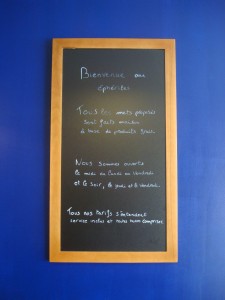 Bienvenue aux
éphérites
Tous les mets proposés
sont faits maison
à base de produits frais.
Nous sommes ouverts
le midi du lundi au vendredi
et le soir, le jeudi et le vendredi.
Tous nos tarifs s'entendent
service inclus et toutes taxes comprises